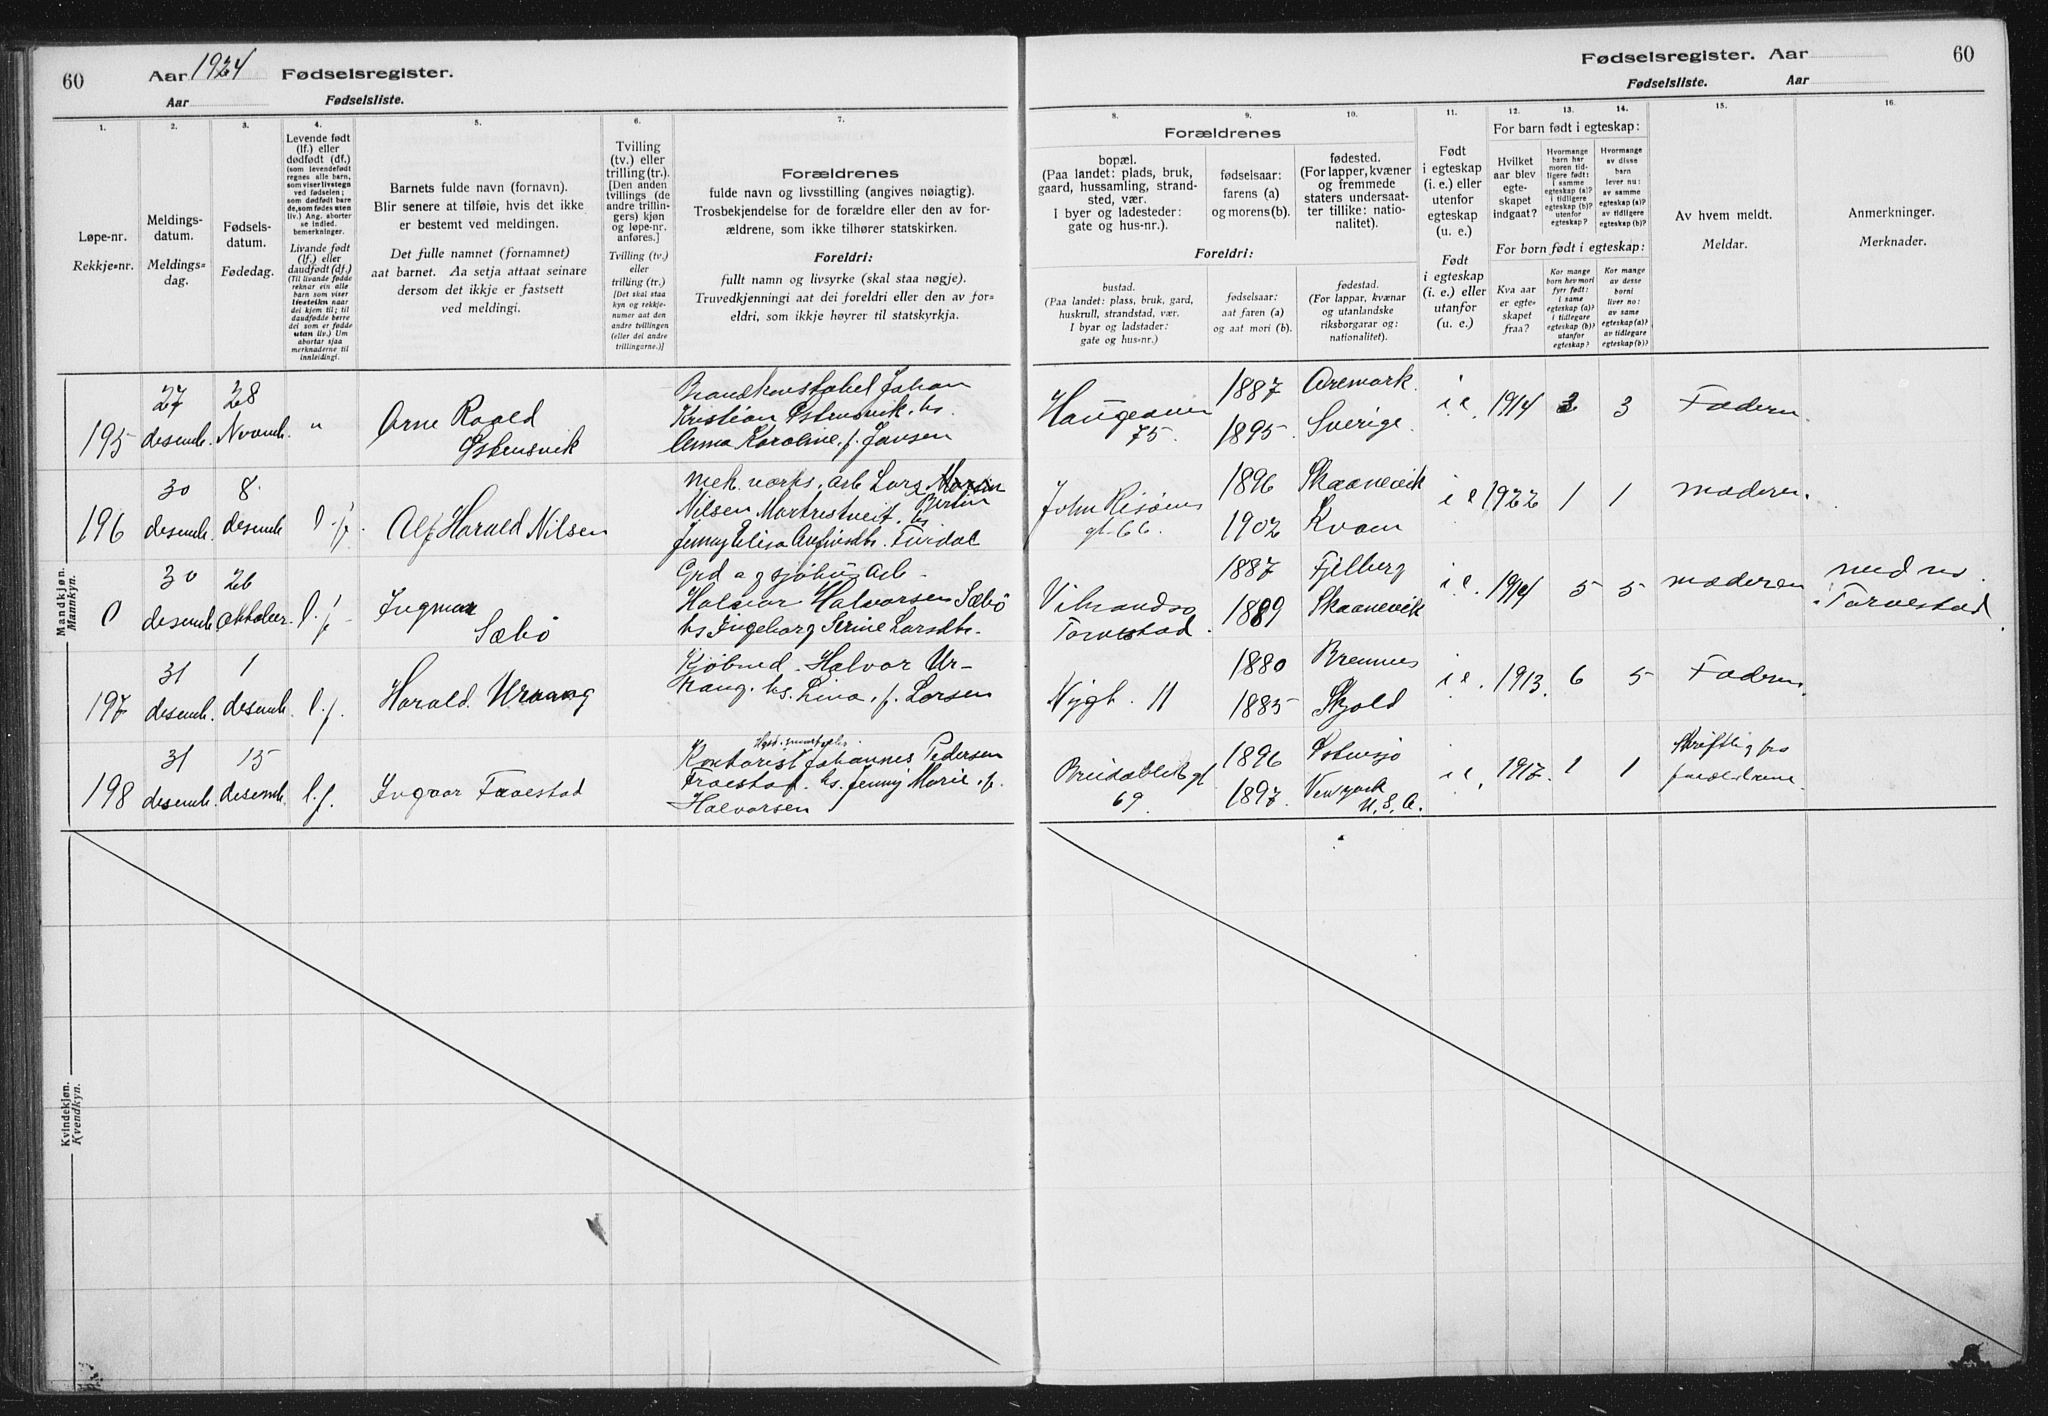 60
Aar 1924 Fødselsregister.
Aar Fødselsliste.
1.
2.
3.
4.
5.
6.
7.
Løpe-nr.
Rekkje-nr.
Meldings-
datum.
Meldings-
dag.
Fødsels-
datum.
Fødedag.
Levende født
(lf.) eller
dødfødt (df.)
(som levendefødt
regnes alle barn,
som viser livstegn
ved fødselen;
som dødfødt bare
de, som fødes uten
liv.) Ang. aborter
se indled.
bemerkninger.
Livande født
(lf.) eller
daudfødt (df.)
(Til livande fødde
reknar ein alle
born som viser
livsteikn naar
dei kjem til; til
daudfødde berre
dei som er fødde
utan liv.) Um
abortar sjaa
merknaderne til
innleidingi.
Barnets fulde navn (fornavn).
Blir senere at tilføie, hvis det ikke
er bestemt ved meldingen.
Det fulle namnet (fornamnet)
aat barnet. Aa setja attaat seinare
dersom det ikkje er fastsett
ved meldingi.
Tvilling
(tv.) eller
trilling (tr.).
[Den anden
tvillings (de
andre trillin-
gers) kjøn
og løpe-nr.
anføres.]
Tvilling (tv.)
eller
trilling (tr.)
[Det skal staa
kyn og rekkje-
numer aat den
andre tvillingen
(eller dei andre
trillingarne.)]
Forældrenes
fulde navn og livsstilling (angives nøiagtig).
Trosbekjendelse for de forældre eller den av for-
ældrene, som ikke tilhører statskirken.
Foreldri:
fullt namn og livsyrke (skal staa nøgje).
Truvedkjenningi aat dei foreldri eller den av for-
eldri, som ikkje høyrer til statskyrkja.
Mandkjøn.
Mannkyn.
195
27
desemb.
28
Novemb.
"
Arne Roald
Østensvik
Brandkonstabel Johan
Kristian Østensvik. hs.
Anna Karoline, f. Jansen
196
30
desemb.
8.
desemb.
l.f.
Alf Harald Nilsen
mek. verks. arb. Lars Martin
Bertin
Nilsen hs
Jenny Elisa
0
30
desemb.
26
oktober
l.f.
Ingmar
Sæbö
Grd og sjöhus arb.
Halvor Halvorsen Sæbö
hs Ingeborg Serine Larsdtr.
197
31
desemb.
1
desemb.
l.f.
Harald Urang
Kjöbmd. Halvor Ur-
rang. hs. Lina, f. Larsen
198
31
desemb.
15
desemb.
l.f.
Ingvar Froestad
Kontorist Johannes Pedersen
Froestad. hs. Jenny Marie, f.
Halvorsen
Kvindekjøn.
Kvendkyn.
Fødselsregister. Aar
60
Fødselsliste. Aar
8.
9.
10.
11.
12.
13.
14.
15.
16.
Forældrenes
bopæl.
(Paa landet: plads, bruk,
gaard, hussamling, strand-
sted, vær.
I byer og ladesteder:
gate og hus-nr.).
fødselsaar:
farens (a)
og morens (b).
fødested.
(For lapper, kvæner
og fremmede
staters undersaat-
ter tillike: natio-
nalitet).
Foreldri:
bustad.
(Paa landet: plass, bruk, gard,
huskrull, strandstad, vær.
I byar og ladstader:
gate og hus-nr.)
fødselsaar:
aat faren (a)
og aat mori (b).
fødestad.
(For lappar, kvænar
og utanlandske
riksborgarar og:
nationalitet).
Født
i egteskap
(i. e.) eller
utenfor
egteskap
(u. e.)
Født
i egteskap
(i. e.) eller
utanfor
(u. e.)
For barn født i egteskap:
Hvilket
aar blev
egte-
skapet
indgaat?
Hvormange
barn har
moren tid-
ligere født:
i samme
egteskap (a)?
i tidligere
egteskap (b)?
utenfor
egteskap?
Hvormange
av disse
barn
lever nu:
av samme
egteskap (a)?
av tidligere
egteskap (b)?
For born født i egteskap:
Kva aar
er egte-
skapet
fraa?
Kor mange
born hev mori
fyrr født:
i same
egteskap (a)?
i tidlegare
egteskap (b)?
utanfor
egteskap?
Kor mange
av desse
borni
liver no:
av same
egteskap (a)?
av tidlegare
egteskap (b)?
Av hvem meldt.
Meldar.
Anmerkninger.
Merknader.
Haugeveien
75.
1887
1895
Aremark.
Sverige.
i. e. 1914 3 3 Faderen.
John Risöens
gt. 66.
1896
1902
Skaanevik
Kvam
i e 1922 1 1 moderen.
Vibrandsö
Torvestad.
1887
1889
Fjelberg
Skaanevik
i. e. 1914 5 5 moderen
med
i Torvestad
Nygt. 11
1880
1885
Bremnes
Skjold
i e. 1913. 6 5 Faderen.
Breidablik gt
69.
1896
1897.
Östensjö
Newyork
U. S. A.
i e. 1917. 1 1
Skriftlig fra
forældrene